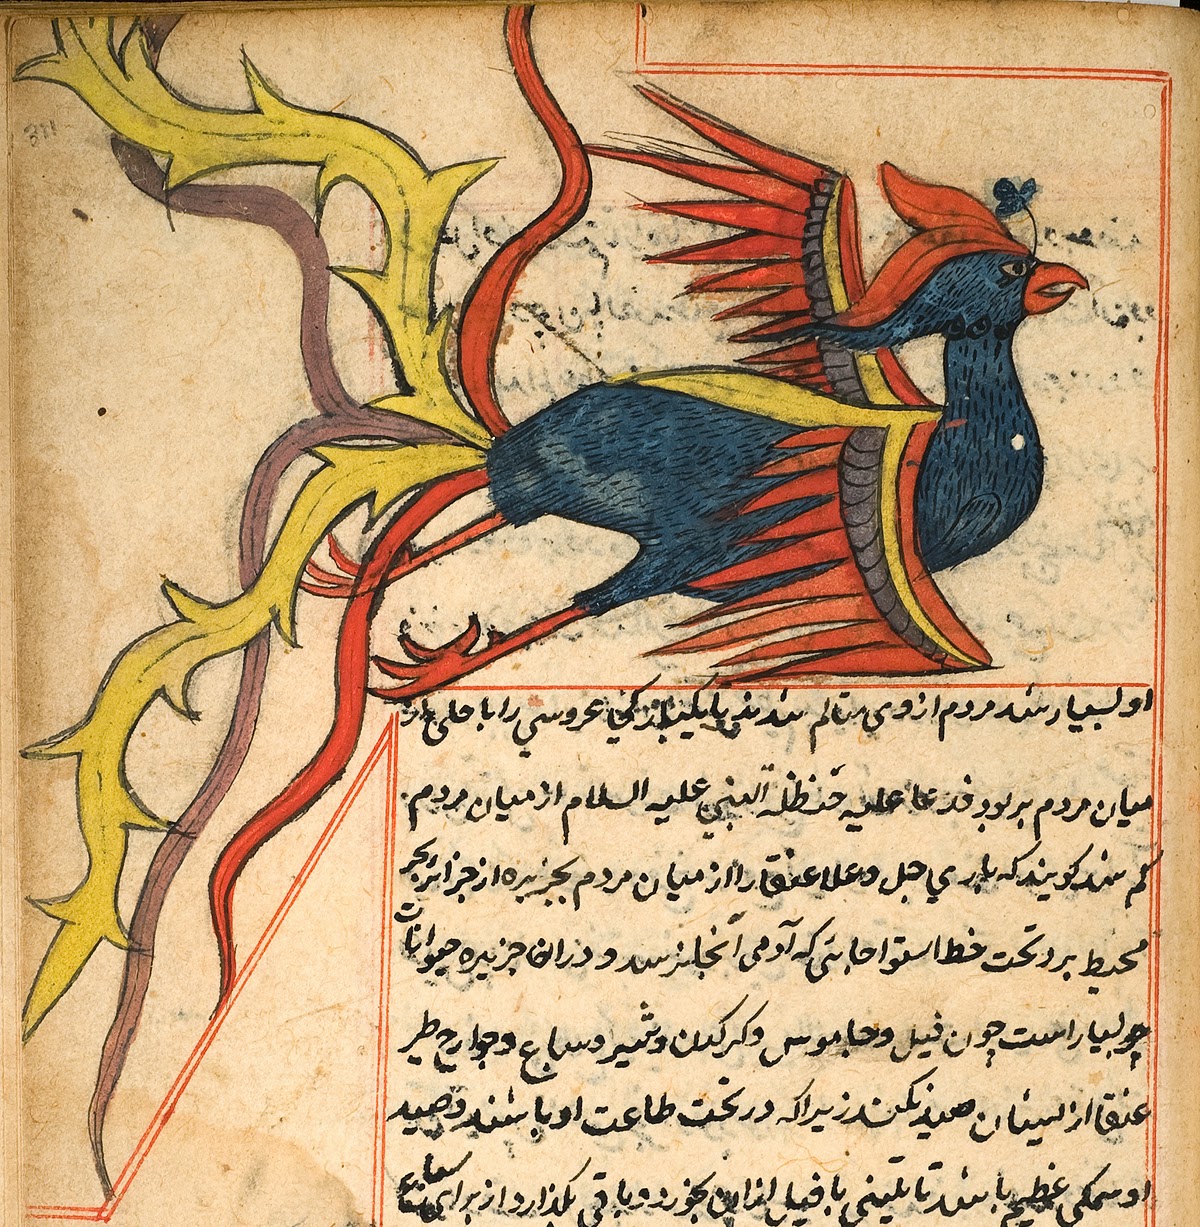 311
او بسیار شد مردم ازوی متالم شدند عروسی را با حلی از
میان مردم بربود فدعا علیه حنظلة النبی علیه السلام از میان مردم
کم شد کویند که باری جل وعلا عنقا را از میان مردم بجزیره از جزایر بحر
محیط برد تحت خط استوا جایی که آدمی آنجا نرسد و دران جزیره حیوانات
بسیار است چون فیل و جاموس و کرکدن و شیر و سباع و جوارح طیر
عنقا از ایشان صید نکند زیرا که در تحت طاعت او باشند و صید
او سمکی عظیم باشد یا تنینی یا فیل ازان بخورد و باقی بگذارد از برای سباع